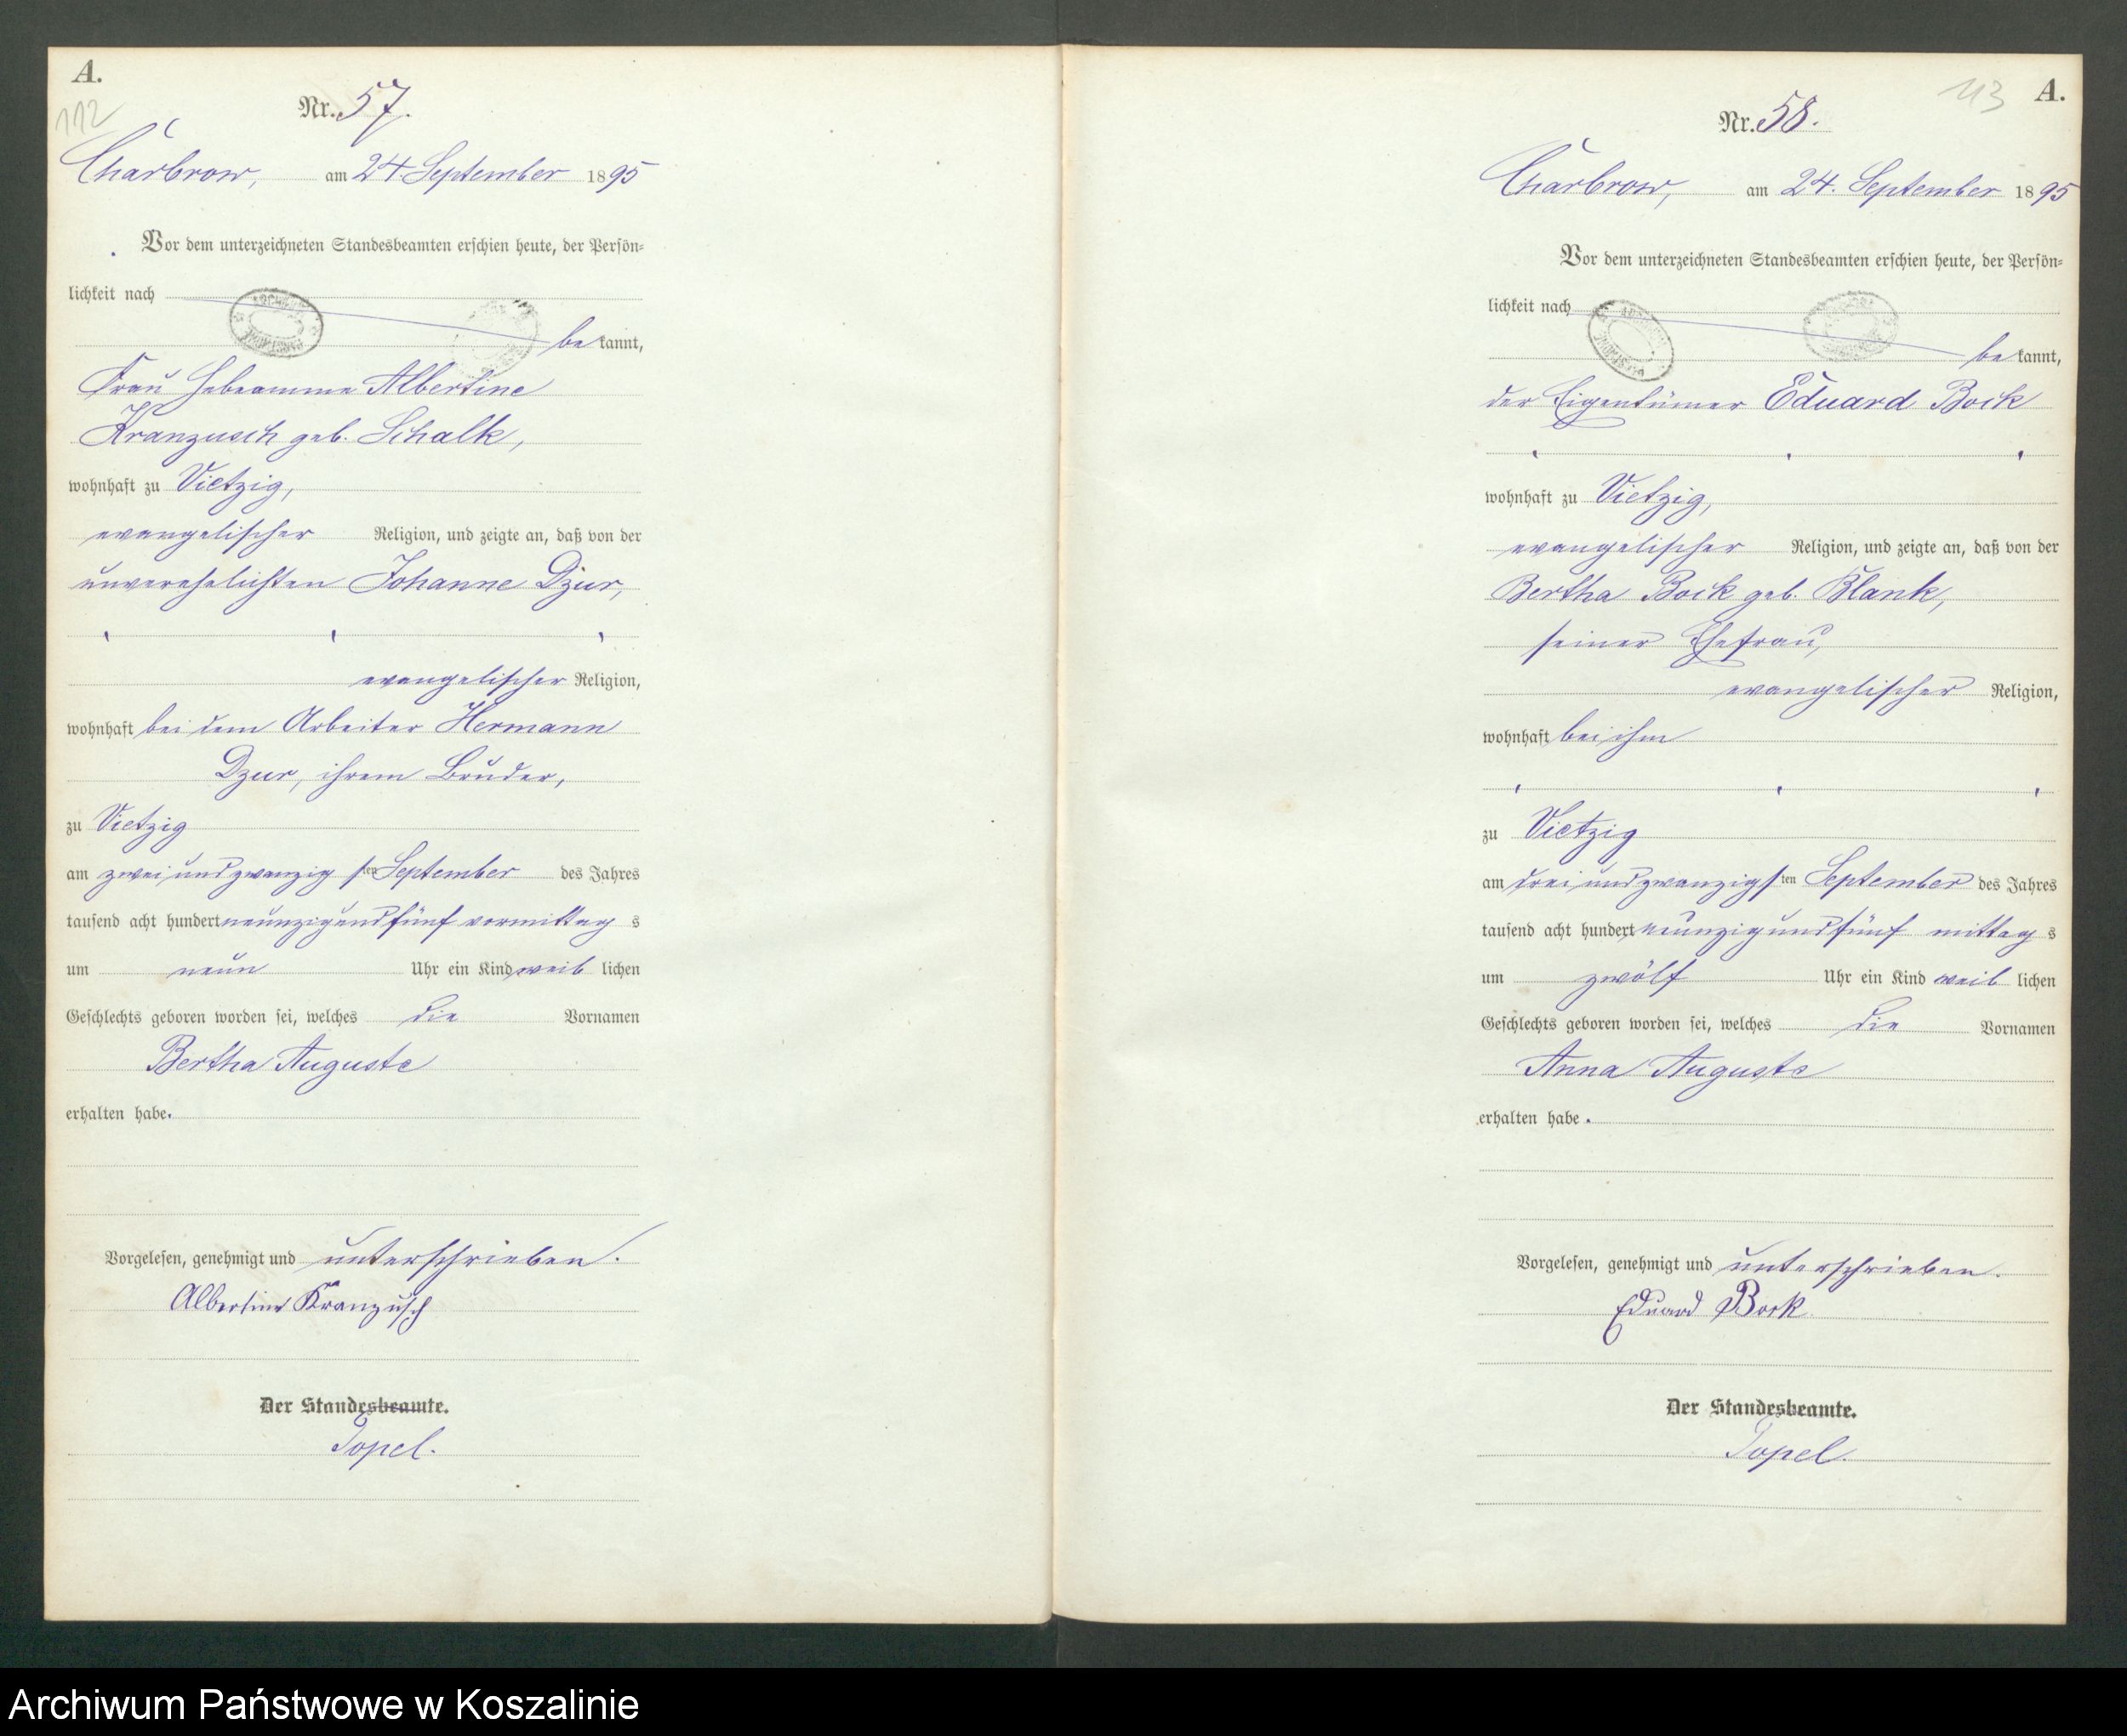 A.
112
Nr. 57.
Charbrow, am 24 September 1895
Vor dem unterzeichneten Standesbeamten erschien heute, der Persön-
lichkeit nach
be kannt,
Frau Hebeamme Albertine
Kranzusch geb. Schalk,
wohnhaft zu Vietzig,
evangelischer Religion, und zeigte an, daß von der
unverehelichten Johanne Dzur,
evangelischer Religion,
wohnhaft bei dem Arbeiter Hermann
Dzur, ihrem Bruder,
zu Vietzig
am zwei und zwanzig sten September des Jahres
tausend acht hundert neunzig und fünf vormittag s
um neun Uhr ein Kind weib lichen
Geschlechts geboren worden sei, welches die Vornamen
Bertha Auguste
erhalten habe.
Vorgelesen, genehmigt und unterschrieben.
Albertine Kranzusch
Der Standesbeamte.
Topel.
113
A.
Nr. 58.
Charbrow, am 24. September 1895
Vor dem unterzeichneten Standesbeamten erschien heute, der Persön-
lichkeit nach
be kannt,
der Eigentümer Eduard Bock
wohnhaft zu Vietzig,
evangelischer Religion, und zeigte an, daß von der
Bertha Bock geb. Blank,
seiner Ehefrau,
evangelischer Religion,
wohnhaft bei ihm
zu Vietzig
am drei und zwanzig sten September des Jahres
tausend acht hundert neunzig und fünf mittag s
um zwölf Uhr ein Kind weib lichen
Geschlechts geboren worden sei, welches die Vornamen
Anna Auguste
erhalten habe.
Vorgelesen, genehmigt und unterschrieben.
Eduard Bock
Der Standesbeamte.
Topel.
Archiwum Państwowe w Koszalinie